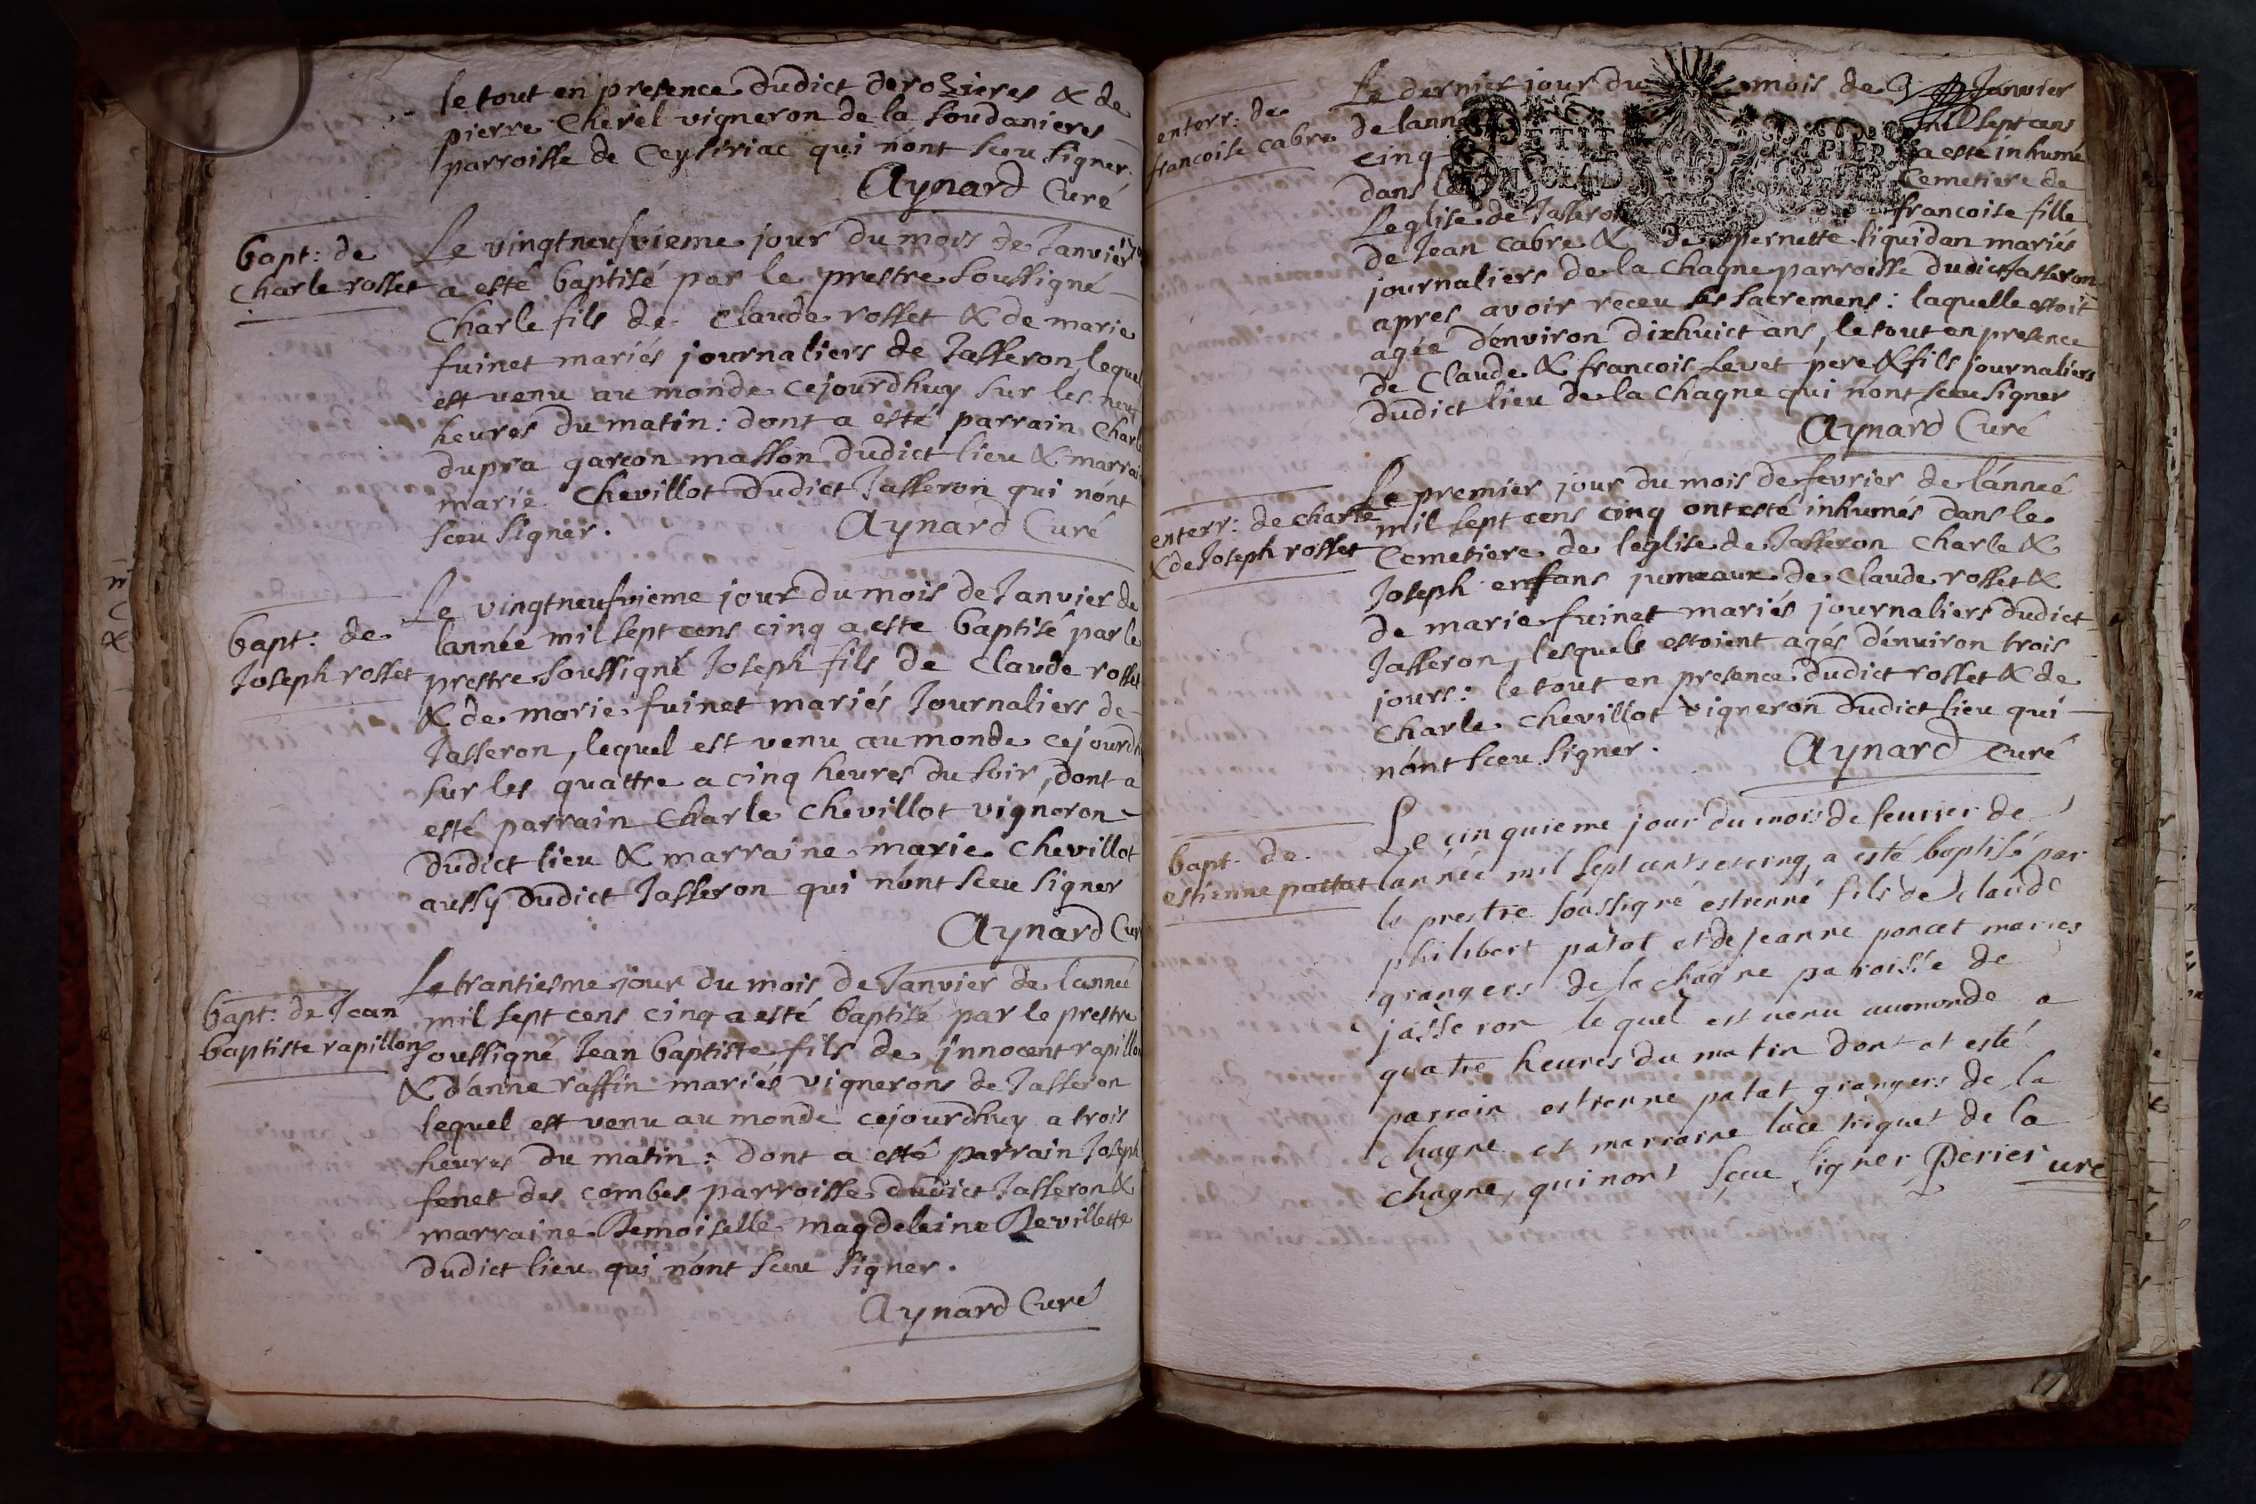 le tout en presence dudict derozieres & de
pierre Cherel vigneron de la Soudanieres
parroisse de Ceysiriac qui n'ont sceu signer.
Aynard Curé
bapt: de
Charle rosset
Le vingtneufvieme jour du mois de Janvier
a esté baptisé par le prestre soussigné
Charle fils de Claude rosset & de marie
fuinet mariés journaliers de Jasseron, lequel
est venu au monde cejourdhuy sur les neuf
heures du matin: dont a esté parrain Charle
dupra garçon masson dudict lieu & marrai
marie Chevillot dudict Jasseron qui n'ont
sceu signer.
Aynard Curé
bapt: de
Joseph rosset
Le vingtneufvieme jour du mois de Janvier de
lannée mil sept cens cinq a este baptisé par le
prestre soussigné Joseph fils de Claude rosset
& de marie fuinet mariés Journaliers de
Jasseron, lequel est venu au monde cejourdh
sur les quattre a cinq heures du soir, dont a
esté parrain Charle Chevillot vigneron
dudict lieu & marraine marie Chevillot
aussy dudict Jasseron qui n'ont sceu signer
Aynard Cur
bapt: de Jean
baptiste rapillon
Le trantiesme jour du mois de Janvier de lannée
mil sept cens cinq a esté baptisé par le prestre
soussigné Jean baptiste fils de Jnnocent rapillon
& d'anne raffin mariés vignerons de Jasseron
lequel est venu au monde cejourdhuy a trois
heures du matin: dont a esté parrain Joseph
fenet des combes parroisse dudict Jasseron &
marraine Demoiselle magdeleine Devillette
dudict lieu qui n'ont sceu signer.
Aynard Curé
enterr: de
francoise cabre
Le dernier jour du mois de Janvier
de lann mil sept cens
cinq a esté inhumé
dans le Cemetiere de
Leglise de Jasseron francoise fille
de Jean cabre & de pernette liquidan mariés
journaliers de la Chagne parroisse dudict Jasseron
apres avoir receu les sacremens: laquelle estoit
agée d'environ dixhuict ans, le tout en presence
de Claude & francois Levet pere & fils journaliers
dudict lieu de la Chagne qui n'ont sceu signer
Aynard Curé
enterr: de charle
& de Joseph rosset
Le premier jour du mois de fevrier de l'année
mil sept cens cinq ont esté inhumés dans le
Cemetiere de leglise de Jasseron Charle &
Joseph enfans jumeaux de Claude rosset &
de marie fuinet mariés journaliers dudict
Jasseron, lesquels estoient agés d'environ trois
jours: le tout en presence dudict rosset & de
Charle Chevillot vigneron dudict lieu qui
n'ont sceu signer.
Aynard Curé
bapt. de
estienne pattat
Le cinquieme jour du mois de feuvrier de
lannée mil sept cents et cinq, a esté baptisé par
le prestre soussigné estienne fils de Claude
philibert patat et de jeanne poncet maries
grangers de la chagne paroisse de
jasseron lequel est venu au monde a
quatre heures du matin dont at esté
parrain estienne patat grangers de la
chagne et marraine luce triquet de la
chagne, qui nont sceu signer Perier uré